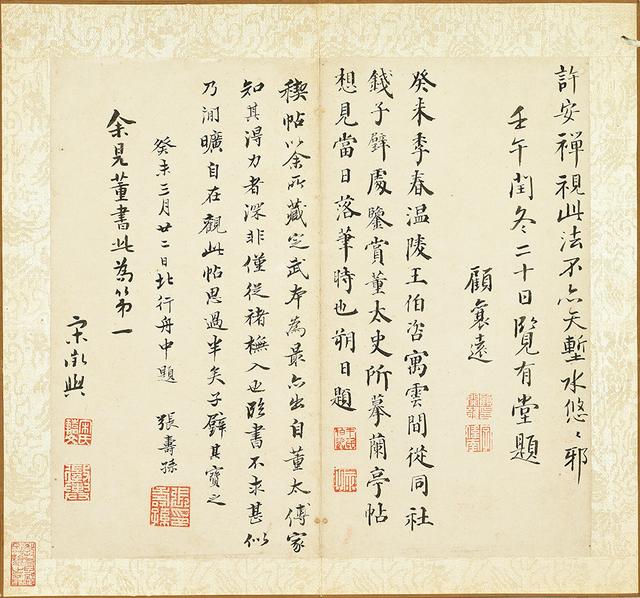 許安禪視此法不亦天塹水悠〻邪
壬午閏冬二十日覽有堂題
顧襄遠
癸未季春温陵王伯咨寓雲間從同社
錢子璧處鑒賞董太史所摹蘭亭帖
想見當日落筆時也朔日題
稧帖以余所藏定武本為最亦出自董太傅家
知其得力者深非僅從褚橅入也臨書不求甚似
乃閒曠自在觀此帖思過半矣子璧其寶之
癸未三月廿二日北行舟中題 張壽孫
余見董書此為第一
宋徵輿